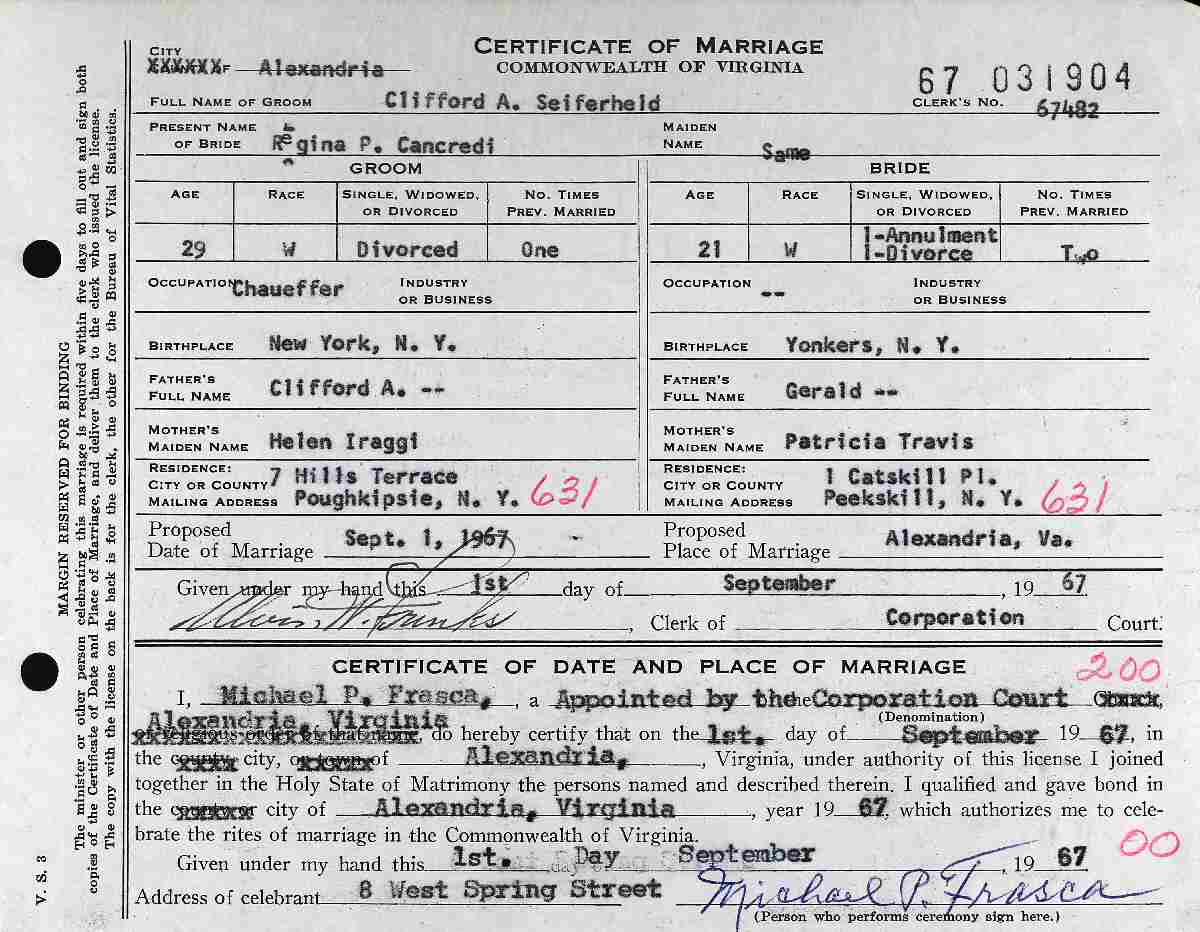 CERTIFICATE OF MARRIAGE
COMMONWEALTH OF VIRGINIA
CITY
XXXXXXF Alexandria
67 031904
FULL NAME OF GROOM Clifford A. Seiferheld
CLERK'S NO. 67482
PRESENT NAME OF BRIDE Regina P. Cancredi
MAIDEN NAME Same
GROOM
BRIDE
AGE RACE SINGLE, WIDOWED, OR DIVORCED NO. TIMES PREV. MARRIED
AGE RACE SINGLE, WIDOWED, OR DIVORCED NO. TIMES PREV. MARRIED
29 W Divorced One
21 W 1-Annulment 1-Divorce Two
OCCUPATION Chaueffer INDUSTRY OR BUSINESS
OCCUPATION -- INDUSTRY OR BUSINESS
BIRTHPLACE New York, N. Y.
BIRTHPLACE Yonkers, N. Y.
FATHER'S FULL NAME Clifford A. --
FATHER'S FULL NAME Gerald --
MOTHER'S MAIDEN NAME Helen Iraggi
MOTHER'S MAIDEN NAME Patricia Travis
RESIDENCE: CITY OR COUNTY 7 Hills Terrace
MAILING ADDRESS Poughkipsie, N. Y. 631
RESIDENCE: CITY OR COUNTY 1 Catskill Pl.
MAILING ADDRESS Peekskill, N. Y. 631
Proposed Date of Marriage Sept. 1, 1967 -
Proposed Place of Marriage Alexandria, Va.
Given under my hand this 1st day of September, 19 67
Alvin W. Frinks, Clerk of Corporation Court.
CERTIFICATE OF DATE AND PLACE OF MARRIAGE
200
I, Michael P. Frasca, a Appointed by the Corporation Court Church,
(Denomination)
Alexandria, Virginia
or religious order by that name, do hereby certify that on the 1st. day of September 19 67, in
the county, city, or town of Alexandria, Virginia, under authority of this license I joined
together in the Holy State of Matrimony the persons named and described therein. I qualified and gave bond in
the city of Alexandria, Virginia, year 19 67, which authorizes me to cele-
brate the rites of marriage in the Commonwealth of Virginia.
00
Given under my hand this 1st. Day September, 19 67
Address of celebrant 8 West Spring Street Michael P. Frasca
(Person who performs ceremony sign here.)
MARGIN RESERVED FOR BINDING
The minister or other person celebrating this marriage is required within five days to fill out and sign both
copies of the Certificate of Date and Place of Marriage, and deliver them to the clerk who issued the license.
The copy with the license on the back is for the clerk, the other for the Bureau of Vital Statistics.
V. S. 3